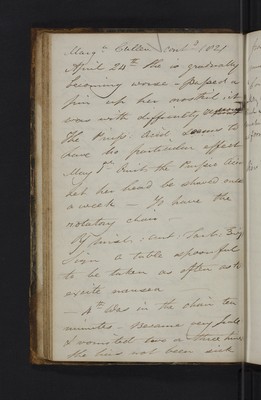 Marg.t Cullen cont.d 1821
April 24th She is gradually
becoming worse - passed a
pin up her nostril it
was with difficulty
The Purg. Acid seems to
have no particular effect
May 1st Omit the Purg. Acid
let her head be shaved once
a week - To have the
rotatory chair -
a table spoonful
to be taken as often as to
excite nausea
- 4th Was in the chair ten
minutes - Became very pale
& vomited two or three times
She has not been sick